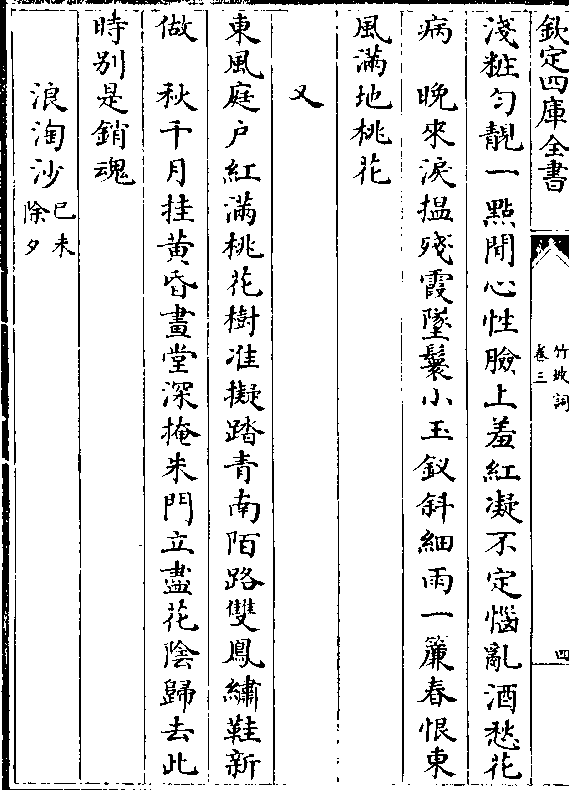 欽定四庫全書
竹坡詞
卷三
四
淺粧匀靚一點閒心性臉上羞紅凝不定惱亂酒愁花
病　晚來淚揾殘霞墜鬟小玉釵斜細雨一簾春恨東
風滿地桃花
又
東風庭户紅滿桃花樹准擬踏青南陌路雙鳳繡鞋新
做　秋千月挂黄昏畫堂深掩朱門立盡花陰歸去此
時别是銷魂
浪淘沙已未除夕